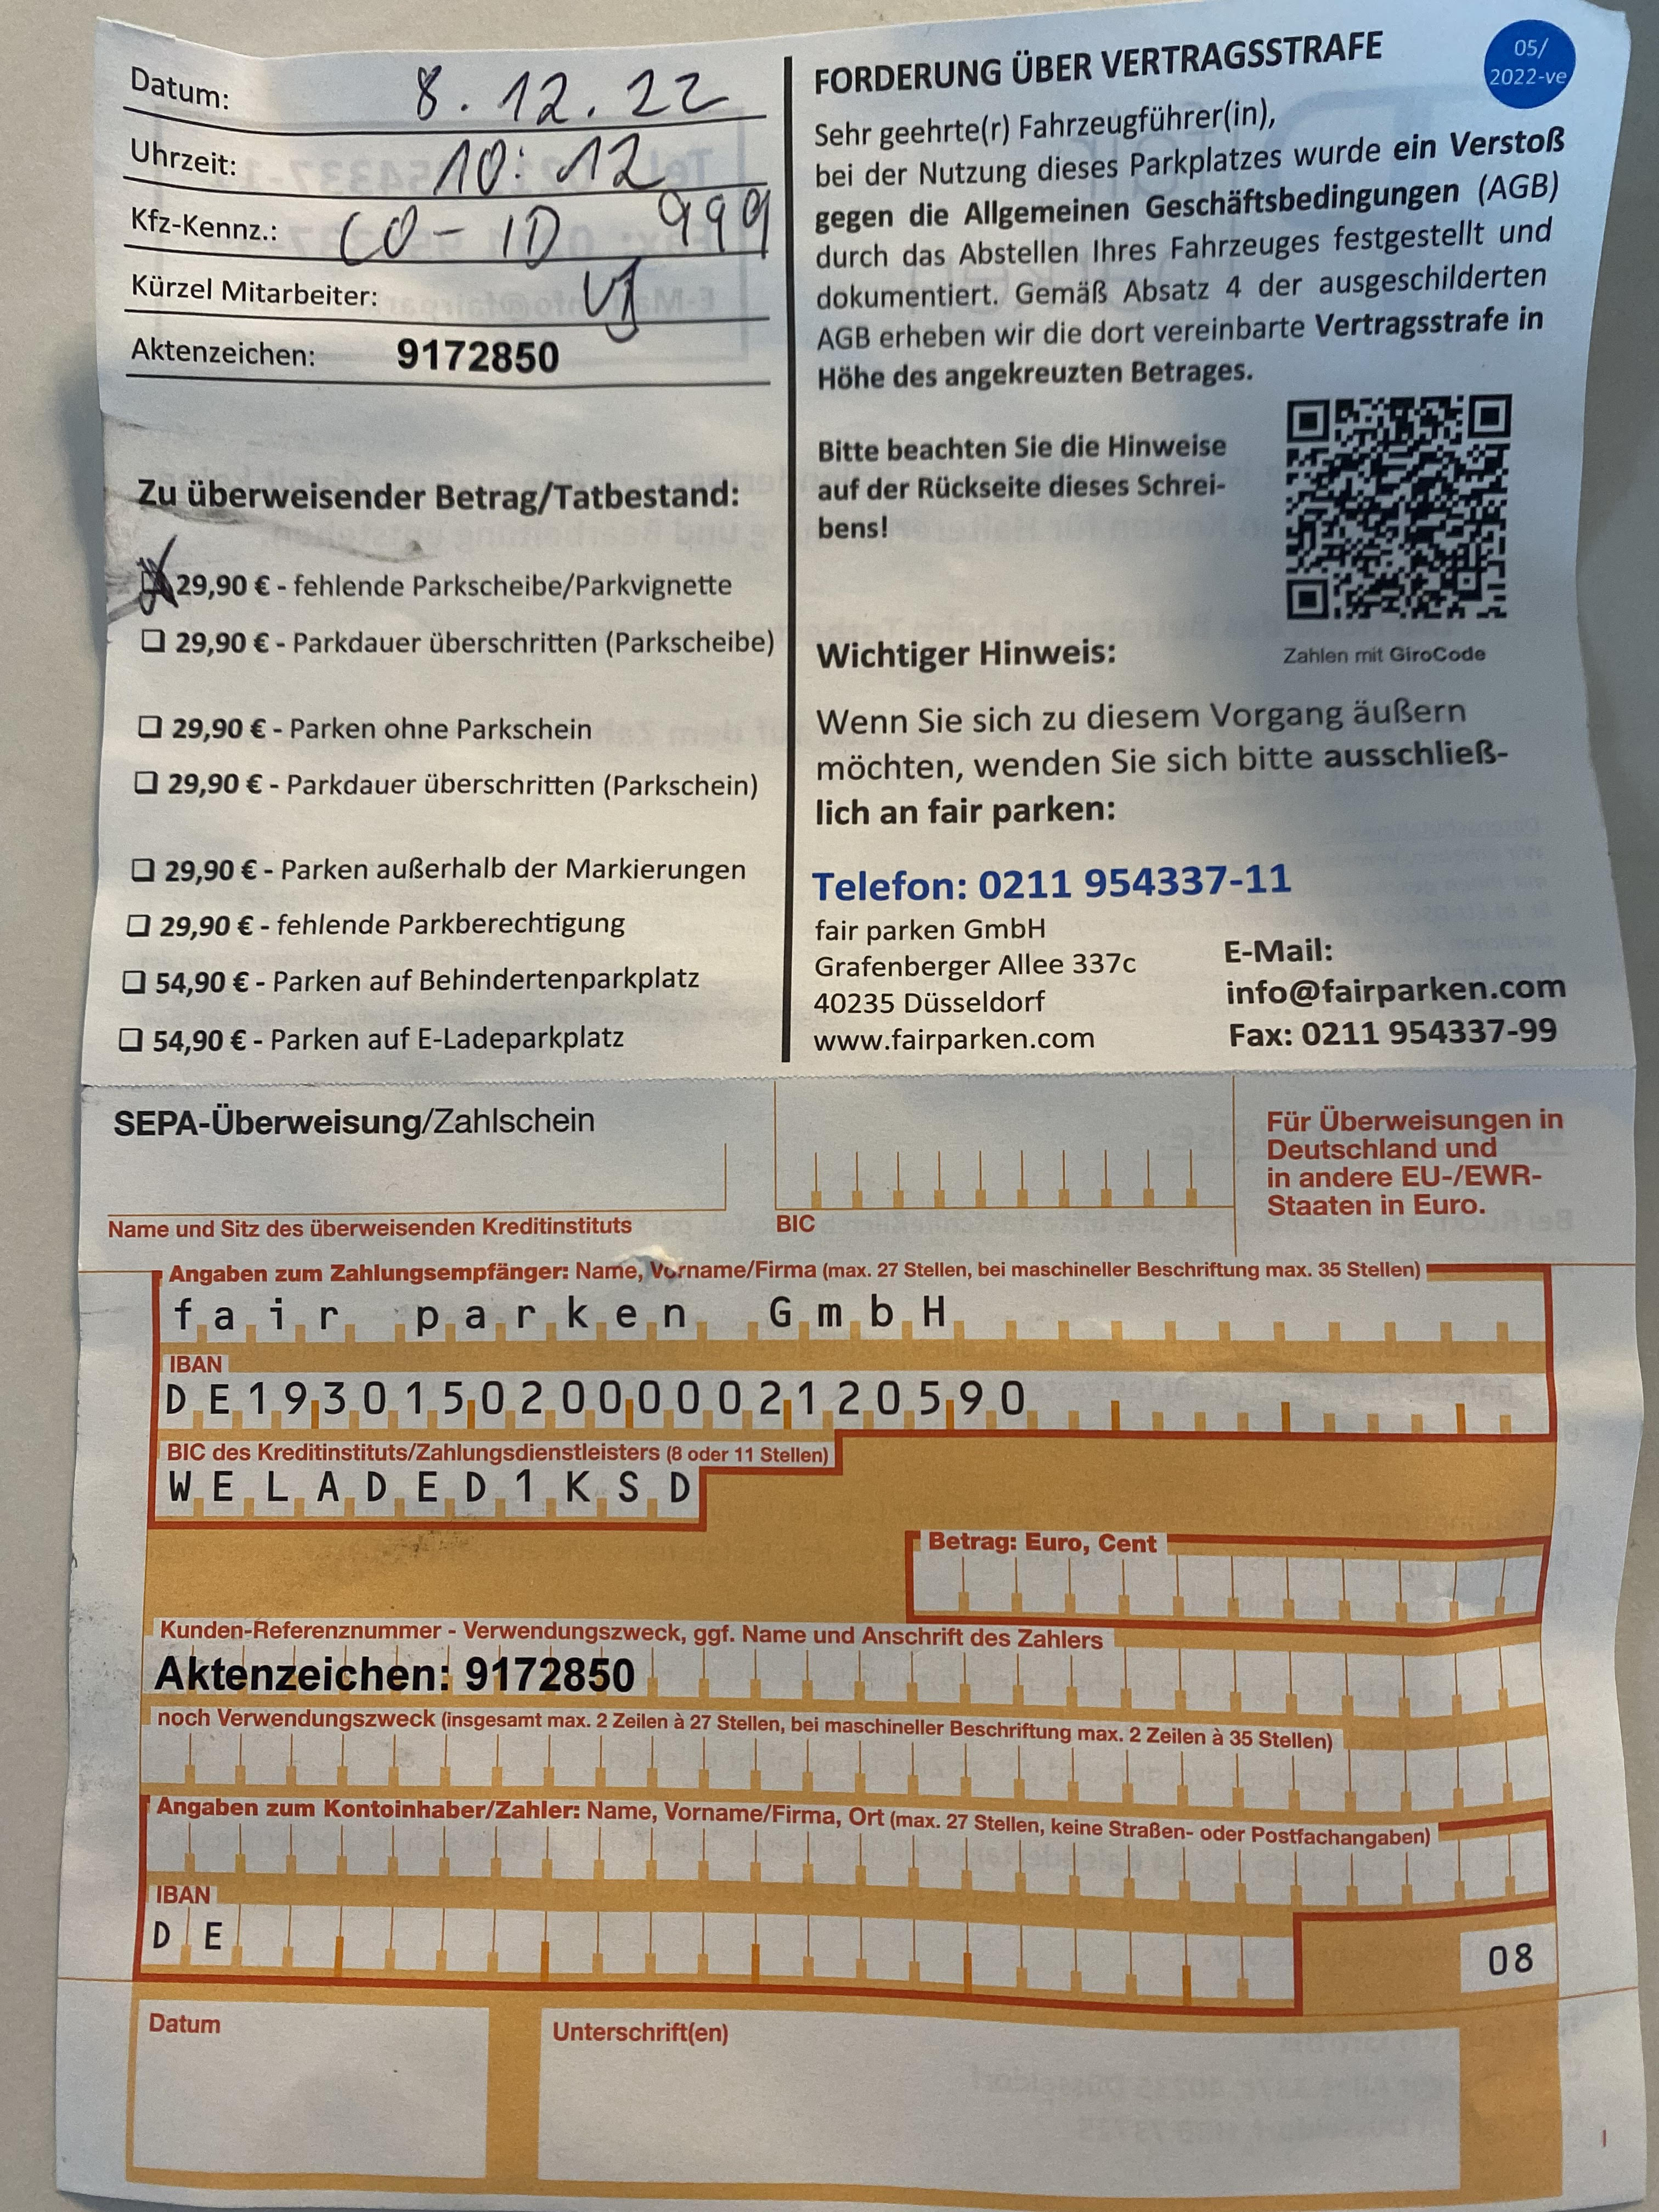 Datum: 8.12.22
Uhrzeit: 10:12
Kfz-Kennz.: CO-ID 999
Kürzel Mitarbeiter:
Aktenzeichen: 9172850
Zu überweisender Betrag/Tatbestand:
29,90 € - fehlende Parkscheibe/Parkvignette
29,90 € - Parkdauer überschritten (Parkscheibe)
29,90 € - Parken ohne Parkschein
29,90 € - Parkdauer überschritten (Parkschein)
29,90 € - Parken außerhalb der Markierungen
29,90 € - fehlende Parkberechtigung
54,90 € - Parken auf Behindertenparkplatz
54,90 € - Parken auf E-Ladeparkplatz
FORDERUNG ÜBER VERTRAGSSTRAFE
05/
2022-ve
Sehr geehrte(r) Fahrzeugführer(in),
bei der Nutzung dieses Parkplatzes wurde ein Verstoß
gegen die Allgemeinen Geschäftsbedingungen (AGB)
durch das Abstellen Ihres Fahrzeuges festgestellt und
dokumentiert. Gemäß Absatz 4 der ausgeschilderten
AGB erheben wir die dort vereinbarte Vertragsstrafe in
Höhe des angekreuzten Betrages.
Bitte beachten Sie die Hinweise
auf der Rückseite dieses Schrei-
bens!
Zahlen mit GiroCode
Wichtiger Hinweis:
Wenn Sie sich zu diesem Vorgang äußern
möchten, wenden Sie sich bitte ausschließ-
lich an fair parken:
Telefon: 0211 954337-11
fair parken GmbH
Grafenberger Allee 337c
40235 Düsseldorf
www.fairparken.com
E-Mail:
info@fairparken.com
Fax: 0211 954337-99
SEPA-Überweisung/Zahlschein
Name und Sitz des überweisenden Kreditinstituts
BIC
Für Überweisungen in
Deutschland und
in andere EU-/EWR-
Staaten in Euro.
Angaben zum Zahlungsempfänger: Name, Vorname/Firma (max. 27 Stellen, bei maschineller Beschriftung max. 35 Stellen)
fair parken GmbH
IBAN
DE19301502000002120590
BIC des Kreditinstituts/Zahlungsdienstleisters (8 oder 11 Stellen)
WELADED1KSD
Betrag: Euro, Cent
Kunden-Referenznummer - Verwendungszweck, ggf. Name und Anschrift des Zahlers
Aktenzeichen: 9172850
noch Verwendungszweck (insgesamt max. 2 Zeilen à 27 Stellen, bei maschineller Beschriftung max. 2 Zeilen à 35 Stellen)
Angaben zum Kontoinhaber/Zahler: Name, Vorname/Firma, Ort (max. 27 Stellen, keine Straßen- oder Postfachangaben)
IBAN
DE
08
Datum
Unterschrift(en)